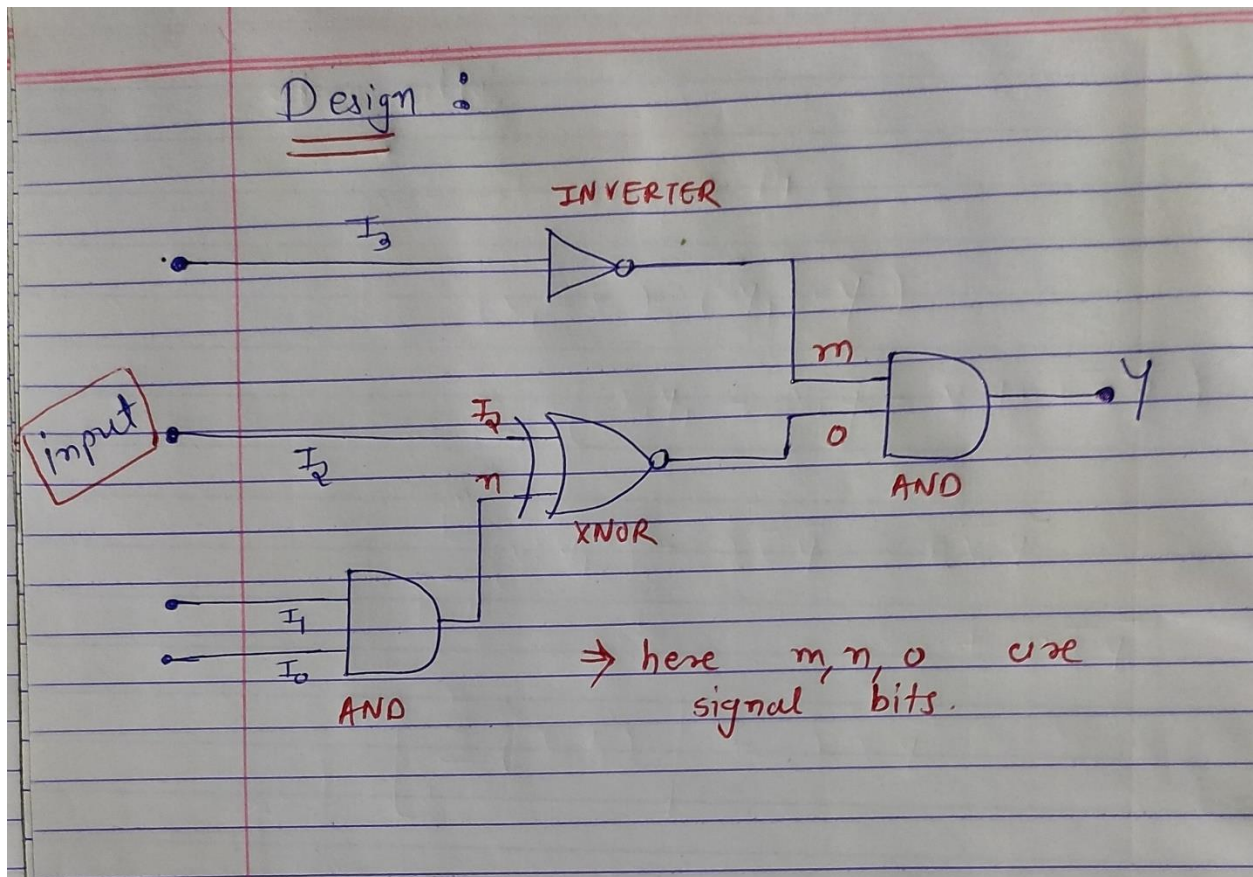 Design :
INVERTER
I₃
m
Y
input
I₂
I₂
n
o
AND
XNOR
I₁
I₀
AND
⇒ here m, n, o are
signal bits.